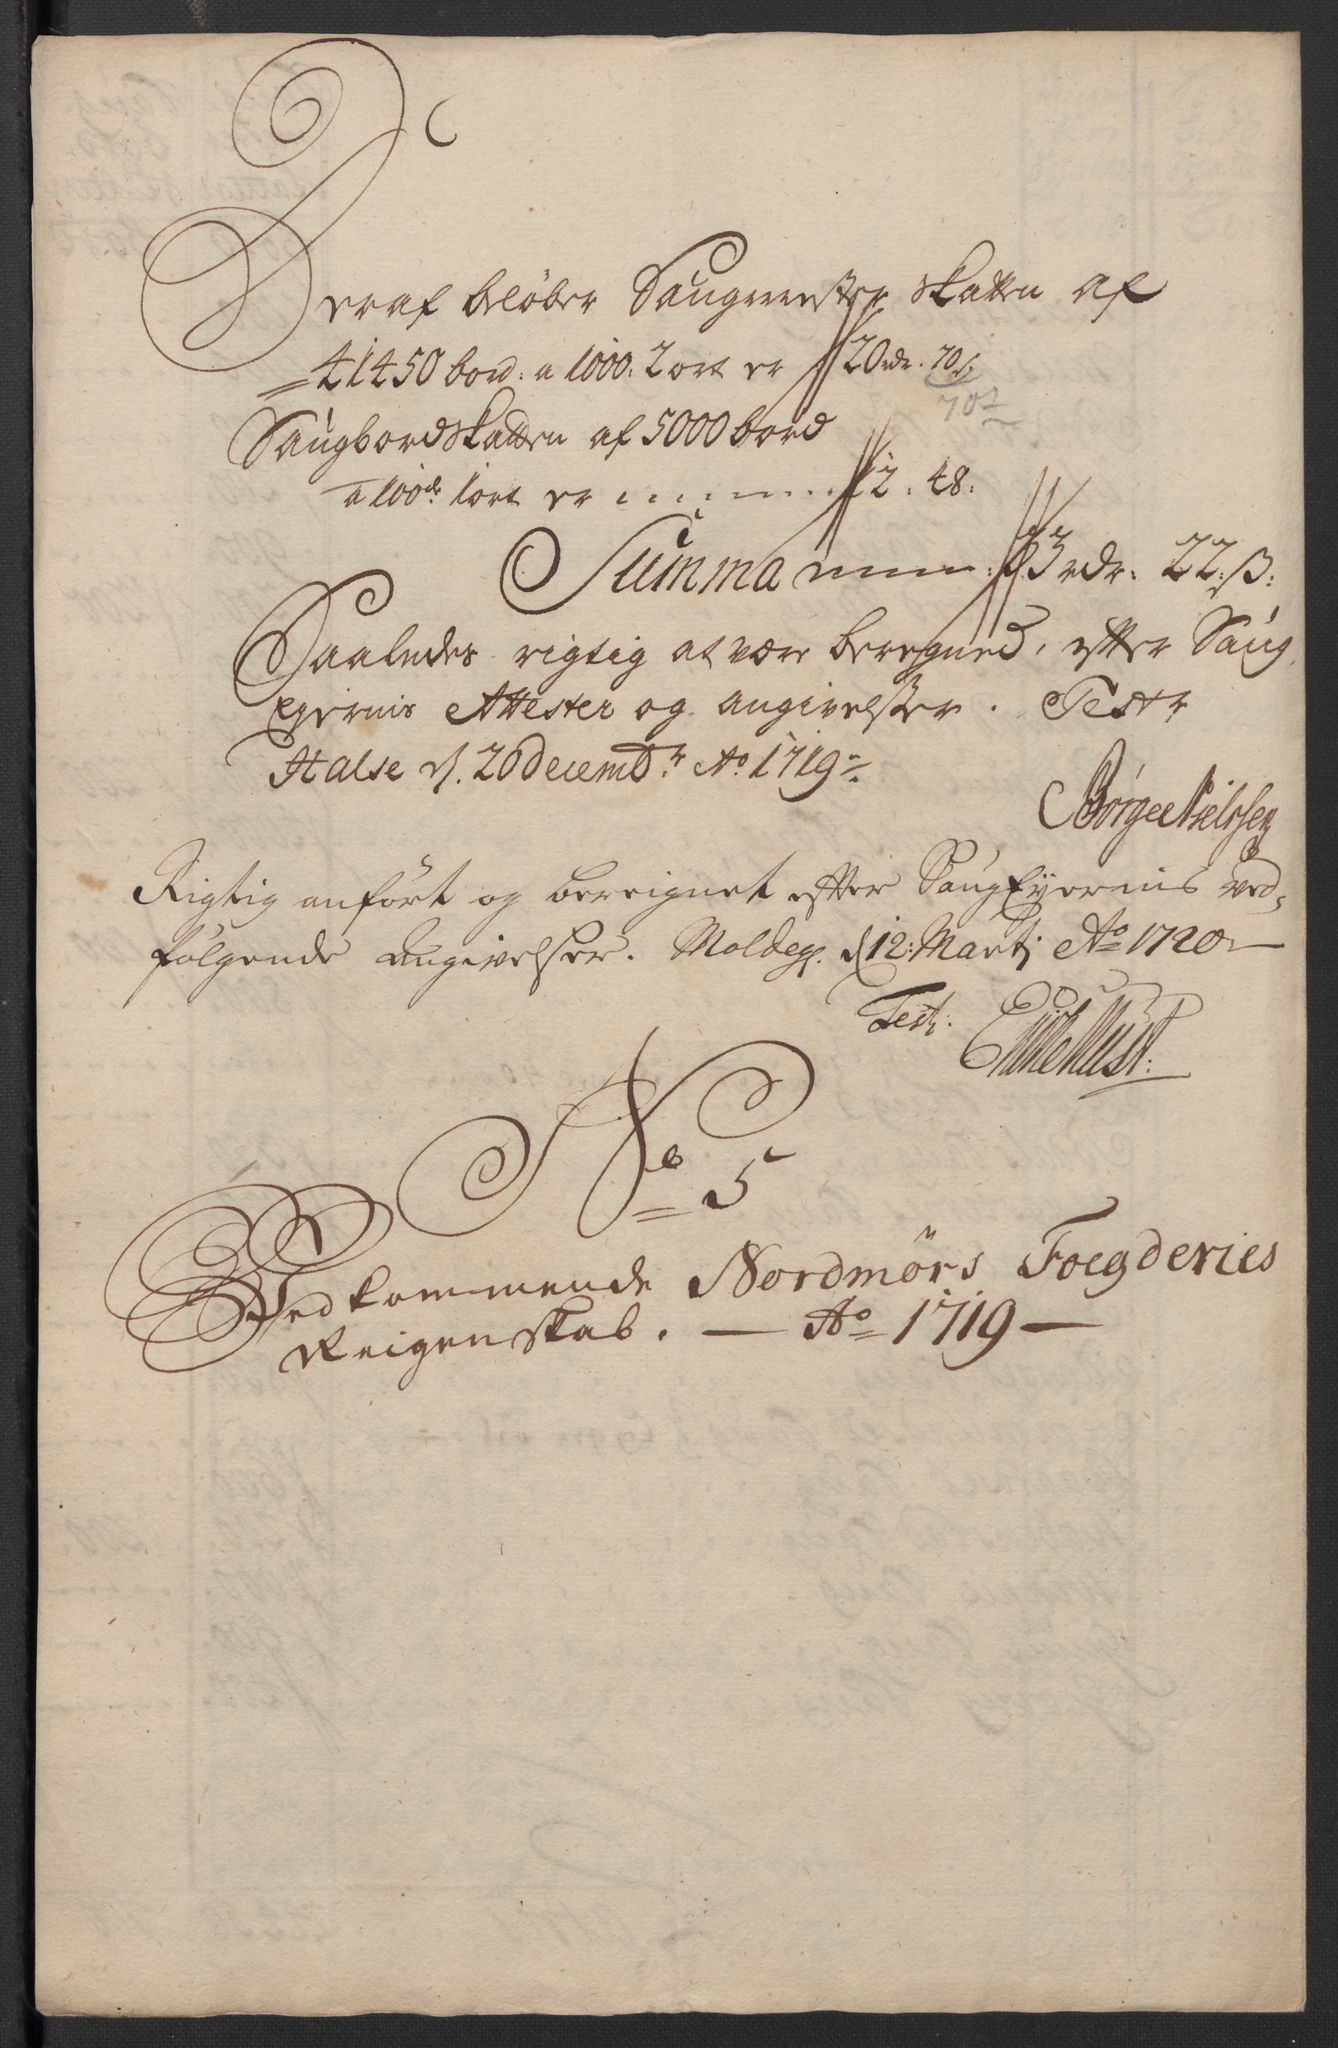 Deraf beløber Saugmester skatten af
41450 bord: a 1000: 2 ort er 20 rdr. 70 s:
70 s
Saugbordskatten af 5000 bord
a 100de 1 ort er 12. 48:
Summa 33 rdr. 22: ß:
Saaledes rigtig at være beregned, efter Saug
Ejernis Attester og angivelsser. Testr
Halse d. 20 Decembr Ao. 1719
Børge Nielssen
Rigtig anført og bereignet efter SaugEyernis ved-
følgende angivelser. Molde d 12: Martj Ao 1720
Test:
No 5
Vedkommende Nordmørs Foegderies
Reigenskab. — Ao 1719 —